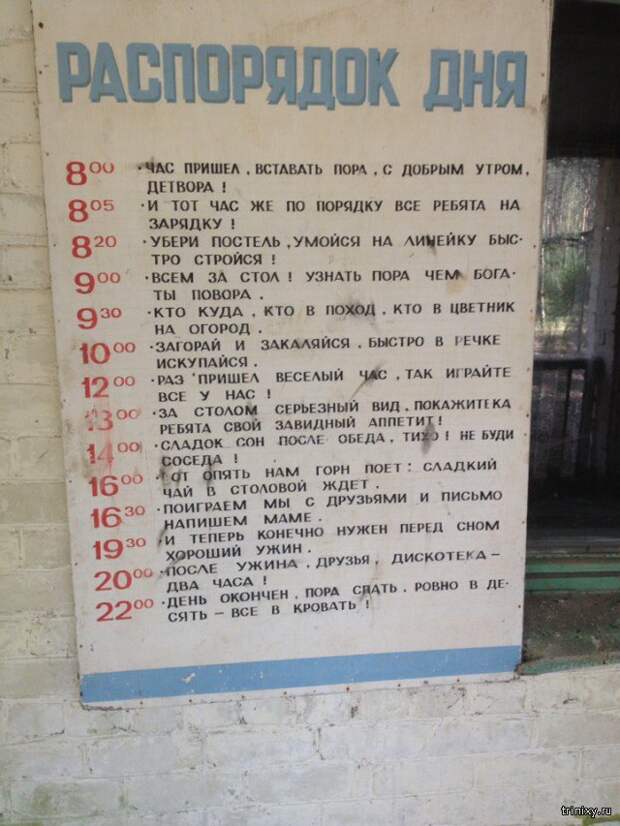 РАСПОРЯДОК ДНЯ
8 00 · ЧАС ПРИШЕЛ, ВСТАВАТЬ ПОРА, С ДОБРЫМ УТРОМ,
ДЕТВОРА!
8 05 · И ТОТ ЧАС ЖЕ ПО ПОРЯДКУ ВСЕ РЕБЯТА НА
ЗАРЯДКУ!
8 20 · УБЕРИ ПОСТЕЛЬ, УМОЙСЯ НА ЛИНЕЙКУ БЫС-
ТРО СТРОЙСЯ!
9 00 · ВСЕМ ЗА СТОЛ! УЗНАТЬ ПОРА ЧЕМ БОГА-
ТЫ ПОВОРА.
9 30 · КТО КУДА, КТО В ПОХОД, КТО В ЦВЕТНИК
НА ОГОРОД.
10 00 · ЗАГОРАЙ И ЗАКАЛЯЙСЯ, БЫСТРО В РЕЧКЕ
ИСКУПАЙСЯ.
12 00 · РАЗ ПРИШЕЛ ВЕСЕЛЫЙ ЧАС, ТАК ИГРАЙТЕ
ВСЕ У НАС!
13 00 · ЗА СТОЛОМ СЕРЬЕЗНЫЙ ВИД, ПОКАЖИТЕКА
РЕБЯТА СВОЙ ЗАВИДНЫЙ АППЕТИТ!
14 00 · СЛАДОК СОН ПОСЛЕ ОБЕДА, ТИХО! НЕ БУДИ
СОСЕДА!
16 00 · ОТ ОПЯТЬ НАМ ГОРН ПОЕТ: СЛАДКИЙ
ЧАЙ В СТОЛОВОЙ ЖДЕТ.
16 30 · ПОИГРАЕМ МЫ С ДРУЗЬЯМИ И ПИСЬМО
НАПИШЕМ МАМЕ.
19 30 · И ТЕПЕРЬ КОНЕЧНО НУЖЕН ПЕРЕД СНОМ
ХОРОШИЙ УЖИН.
20 00 · ПОСЛЕ УЖИНА, ДРУЗЬЯ, ДИСКОТЕКА –
ДВА ЧАСА!
22 00 · ДЕНЬ ОКОНЧЕН, ПОРА СПАТЬ, РОВНО В ДЕ-
СЯТЬ – ВСЕ В КРОВАТЬ!
trinixy.ru